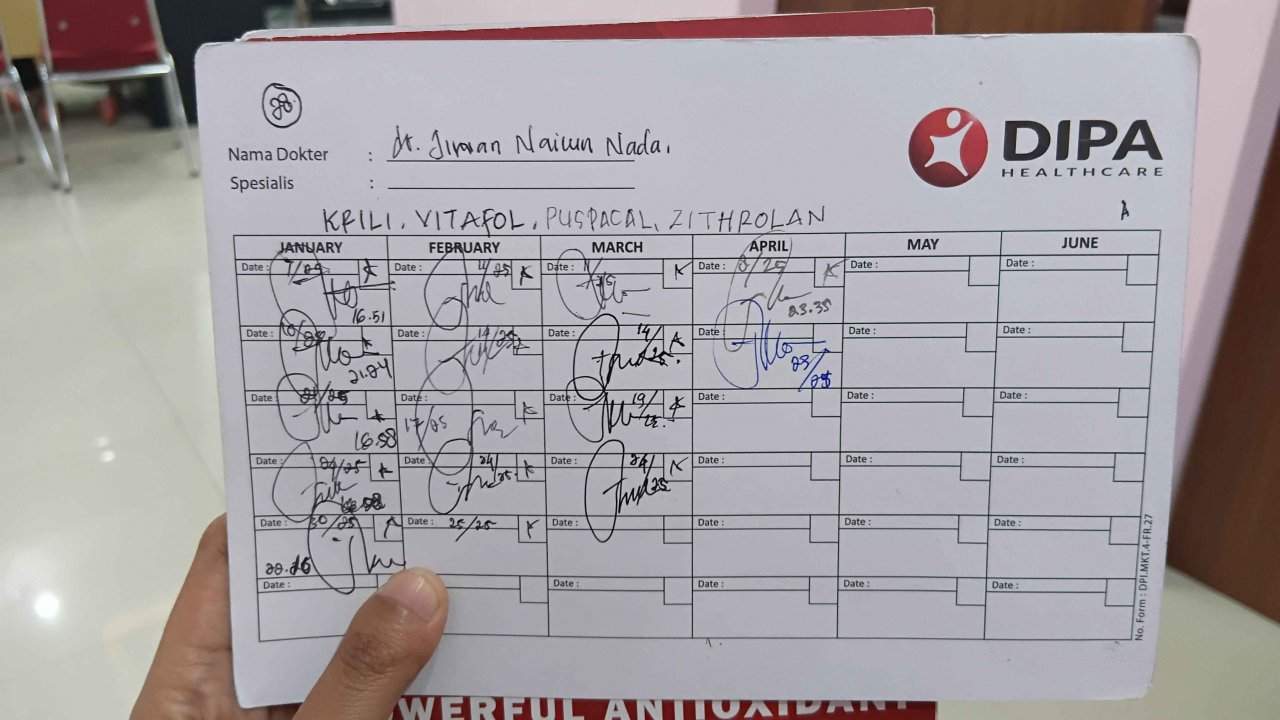 88
Nama Dokter : dr. Jinran Nailun Nada.
Spesialis :
DIPA
HEALTHCARE
KRILI, VITAFOL, PUSPACAL, ZITHROLAN
A
JANUARY FEBRUARY MARCH APRIL MAY JUNE
Date : 7/25 Date : 11/25 Date : 11/25 Date : 8/25 Date : Date :
16.51 23.35
Date : Date : 14/25 Date : 14/25 Date : Date : Date :
21.24 23/25
Date : 21/25 Date : Date : 19/25 Date : Date : Date :
16.58 17/25
Date : 24/25 Date : 24/25 Date : 24/25 Date : Date : Date :
Date : 30/25 Date : 25/25 Date : Date : Date : Date :
20.16
Date : Date : Date : Date : Date :
No. Form : DPI.MKT.4-FR.27
POWERFUL ANTIOXIDANT